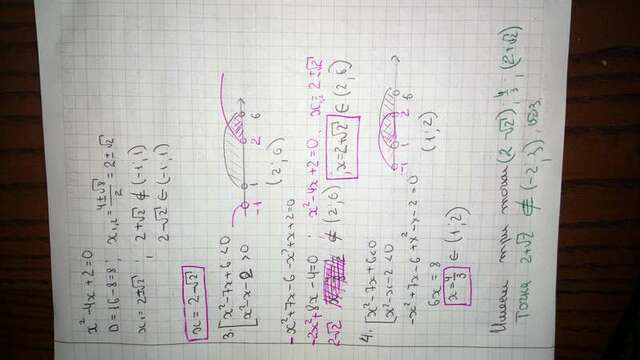 x²-4x+2=0
D=16-8=8; x₁,₂=(4±√8)/2=2±√2
x₁=2±√2; 2+√2 ∉ (-1;1)
2-√2 ∈ (-1;1)
x=2-√2
3. [x²-7x+6<0
x²-x-2>0
-1 1 2 6
(2;6)
-x²+7x-6-x²+x+2=0
-2x²+8x-4=0; x²-4x+2=0; x₁,₂=2±√2
2-√2 ∉ (2;6) x=2+√2 ∈ (2;6)
4. [x²-7x+6<0
x²-x-2<0
-x²+7x-6+x²-x-2=0
6x=8
x=4/3 ∈ (1;2)
-1 1 2 6
(1;2)
Имеем три точки (2-√2); 4/3; (2+√2)
Точка 2+√2 ∉ (-2;3),